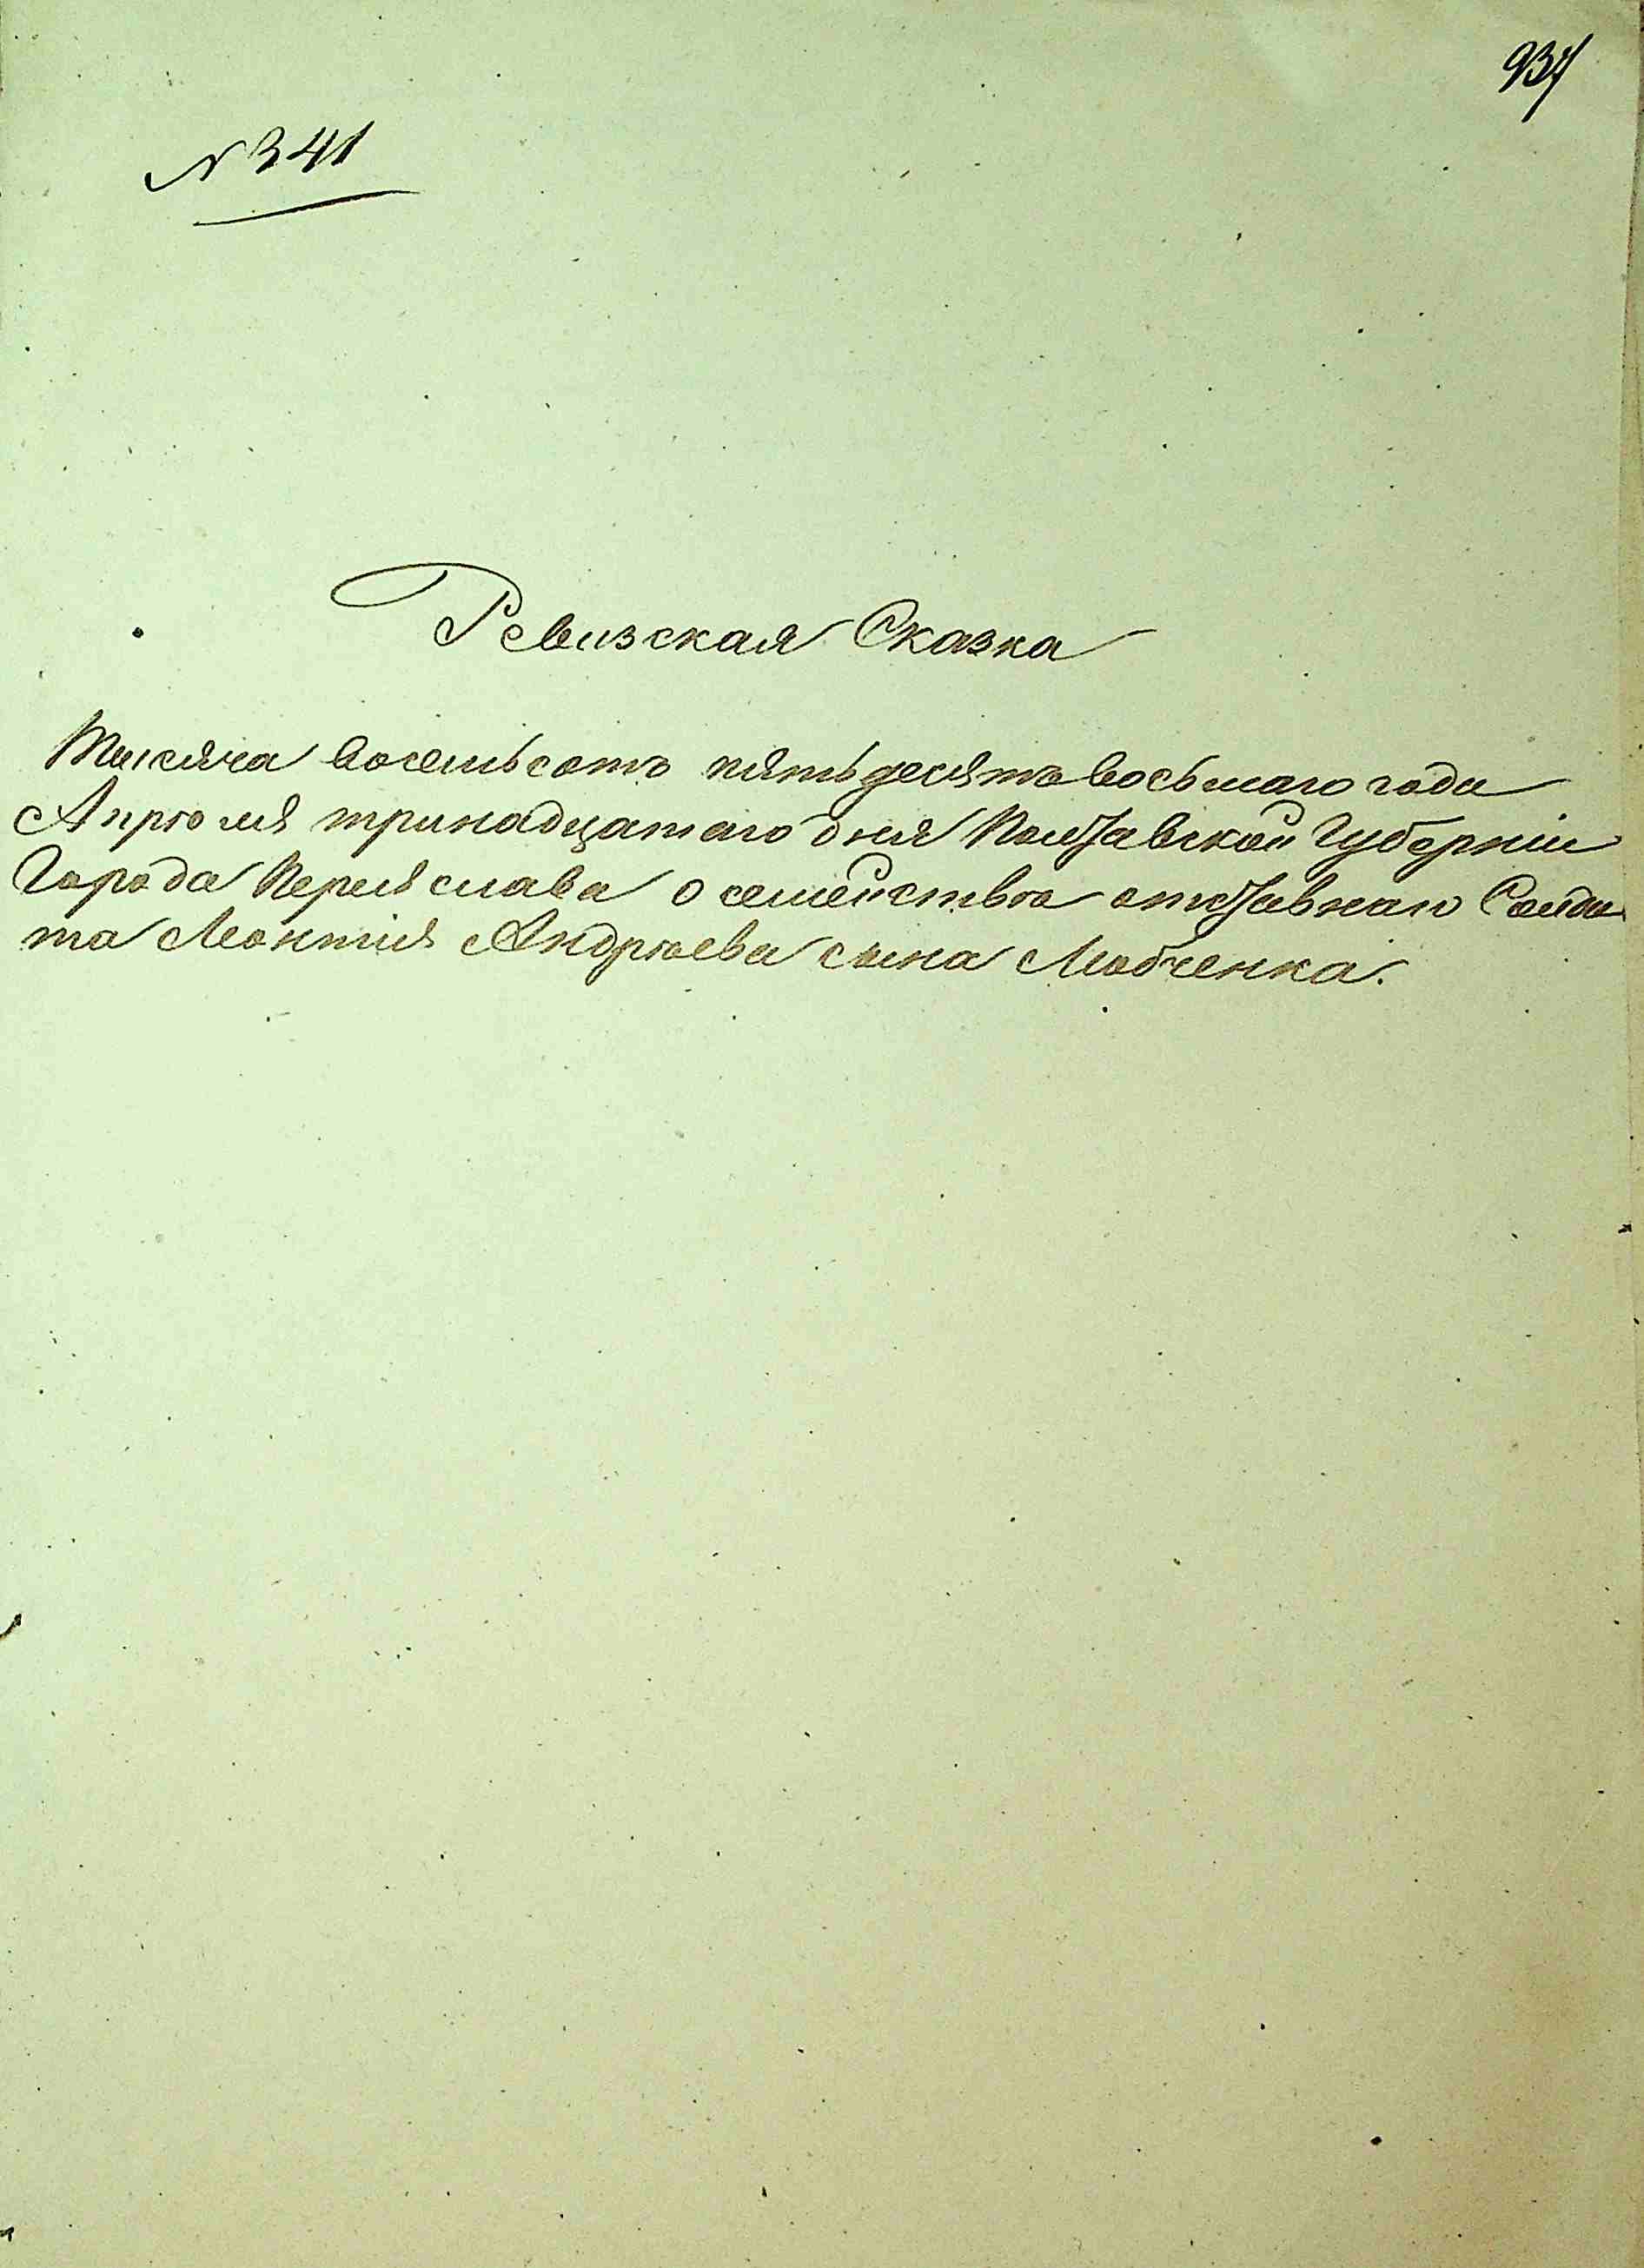 937
N 341
Ревизская Сказка
Тысяча восемьсотъ пятьдесятъ восьмаго года
Апрѣля тринадцатаго дня Полтавской Губерніи
Города Переяслава о семействѣ отставнаго Солда
та Леонтія Андрѣева сына Любченка.